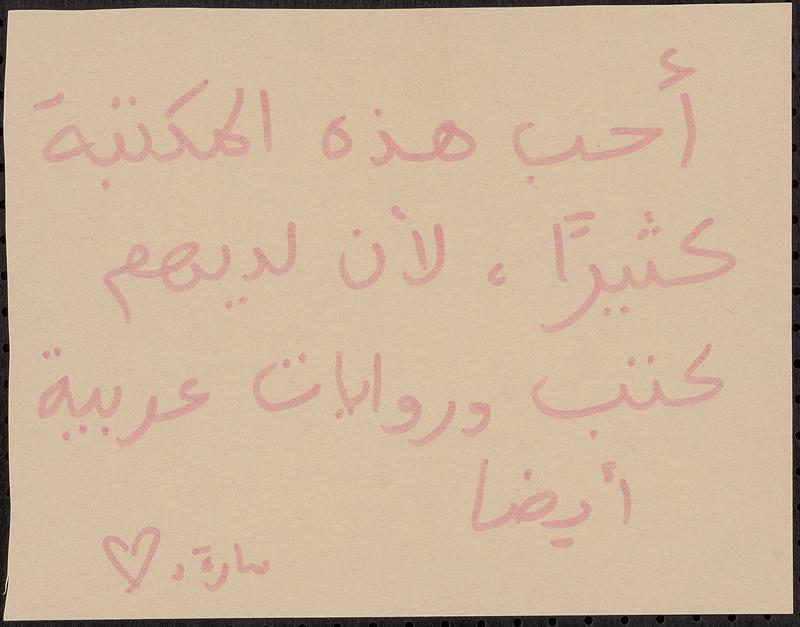 أحب هذه المكتبة
كثيرًا ، لأن لديهم
كتب وروايات عربية
أيضا
سارة د. ♡